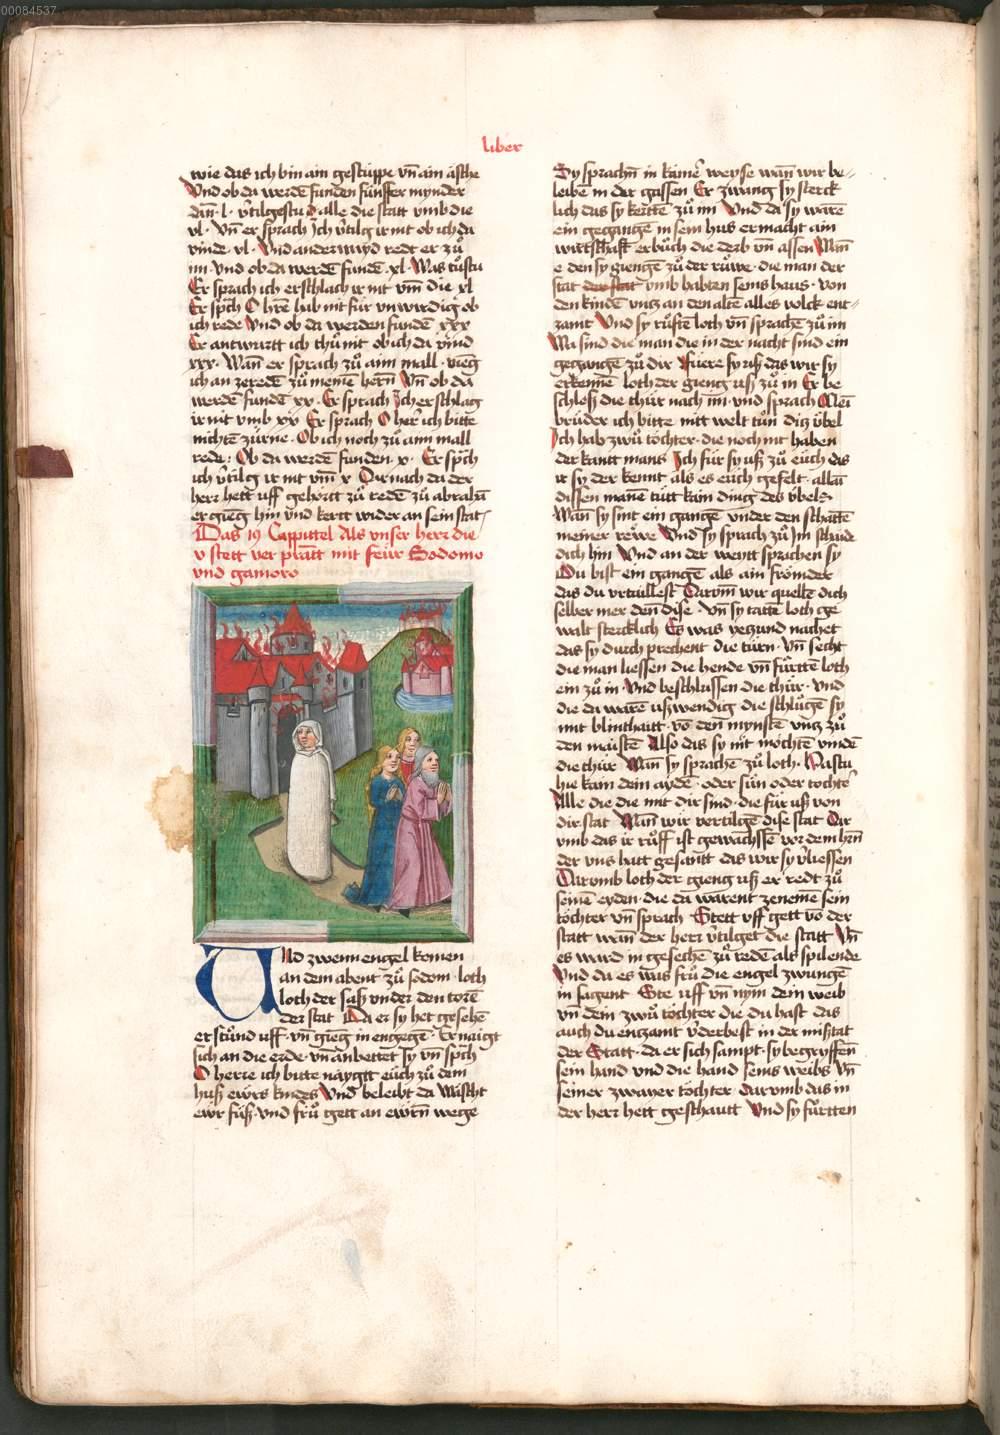 00084537
liber
wie das ich bin ain gestüppe vn̄ ain äsche
Vnd ob da werdē funden fünffer mynder
dan̄ ·l· v̓tilgestu alle die statt vmb die
vl· Vn̄ er sprach Ich v̓tilg ir nit ob ich da
vinde ·vl· Vnd anderwayd redt er zů
im vnd ob da werdē fundē ·xl· Was tůstu
Er sprach ich erschlach ir nit vm̄ die xl
Er sp̄ch O hrē hab nit für vnwirdig ob
ich rede Vnd ob da werden fundē xxx
Er antwurtt ich thů nit ob ich da vind
xxx· Wan̄ er sprach zů aim mall
ich an zeredē zů meinē hern̄ Vn̄ ob da
werdē fundē xx· Er sprach Ich erschlag
ir nit vmb xx Er sprach O her ich bitte
nichtē zürne· Ob ich noch zů aim mall
rede· Ob da werdē funden ·x· Er sp̄ch
ich v̓tilg ir nit vm̄ x Dar nach da der
herr hett vff gehörtt zů redē zů abrahā
er gieng hin vnd kertt wider an sein stat
Das 19 Cappittel Als vnser herr die
v stett ver prātt mit feür Sodomo
vnd gamoro
Vnd zwenn engel komen
an dem abent zů sodom· loth
loth der saß vnder den torē
der stat Da er sy het gesehē
er stůnd vff· vn̄ gieng in engegē· Er naigt
sich an die erde· vn̄ anbettet sy vn̄ sp̄ch
O herre ich bitte naygtt eüch zů dem
huß ewrs kindes Vnd beleibt da Wäscht
ewr füß· vnd frů gett an ewrn̄ wege
Sy sprachn̄ in kainē weyse wan̄ wir be-
leibē in der gassen Er zwang sy sterck
lich das sy kertē zů im Vnd da sy warē
ein gegangē in sein hus er macht ain
wirtschafft er bůch die derb vn̄ assen Wan̄
e den sy giengē zů der růwe· die man der
stat der stat vmb habten seins haus· von
den kindē vntz an den altē alles volck ent-
zamt Vnd sy růftē loth vn̄ sprachē zů im
Wa sind die man die in der nacht sind ein
gegangē zů dir füere sy uß das wir sy
erkennē loth der gieng uß zů in Er be
schloß die thür nach im· vnd sprach Mei
brüder ich bitte nitt welt tůn ditz übel
Ich hab zwů töchter· die noch nit haben
der kantt mans Ich für sy uß zů eüch das
ir sy der kennt als es eüch gefelt· allain
dissen manē tütt kain ding des übels·
Wan̄ sy sint ein gangē vnder den schattē
meiner Vnd sy sprach zů Im
dich hin Vnd an der weytt sprachen sy
Du bist ein gangē als ain frömder
das du vrtaillest Darom̄ wir quellē dich
selber mer den̄ dise· Vn̄ sy tattē loth ge
walt stercklich Es was yetzund nachet
das sy durch prechent die türn· vn̄ secht
die man liessen die hende vn̄ fürttē loth
ein zů in· Vnd beschlussen die thür· Vnd
die da warē ußwendig die schlůgē sy
mit blinthaitt· vō den̄ mynstē vntz zů
den maistē Also das sy nit möchtē vindē
die thür Wan̄ sy sprachē zů loth· Hastu
hie kain dein aydē· oder sün oder tochtē
Alle die die mit dir sind· die für uß von
dir stat Wan̄ wir vertilgē dise stat Dar
vmb das ir růff ist gewachssē vor dem hrn̄
der vns hatt gesantt das wir sy v̓liessen
Darumb loth der gieng uß er redt zů
seinē eyden· die da warent zenemē sein
töchter vn̄ sprach Stett vff gett vō der
statt wan̄ der herr v̓tilget die statt Vn̄
es ward in gesechē zů redē als spilende
Vnd da es was frů die engel zwungē
in sagent Ste uff vn̄ nym dein weib
vn̄ dein zwů töchter die du hast das
auch du entzamt v̓derbest in der mißtat
der Statt· da er sich sampt· sy begryffen
sein hand vnd die hand seins weibs vn̄
seiner zwayer töchter darumb das in
der herr hett geschautt Vnd sy fürtten